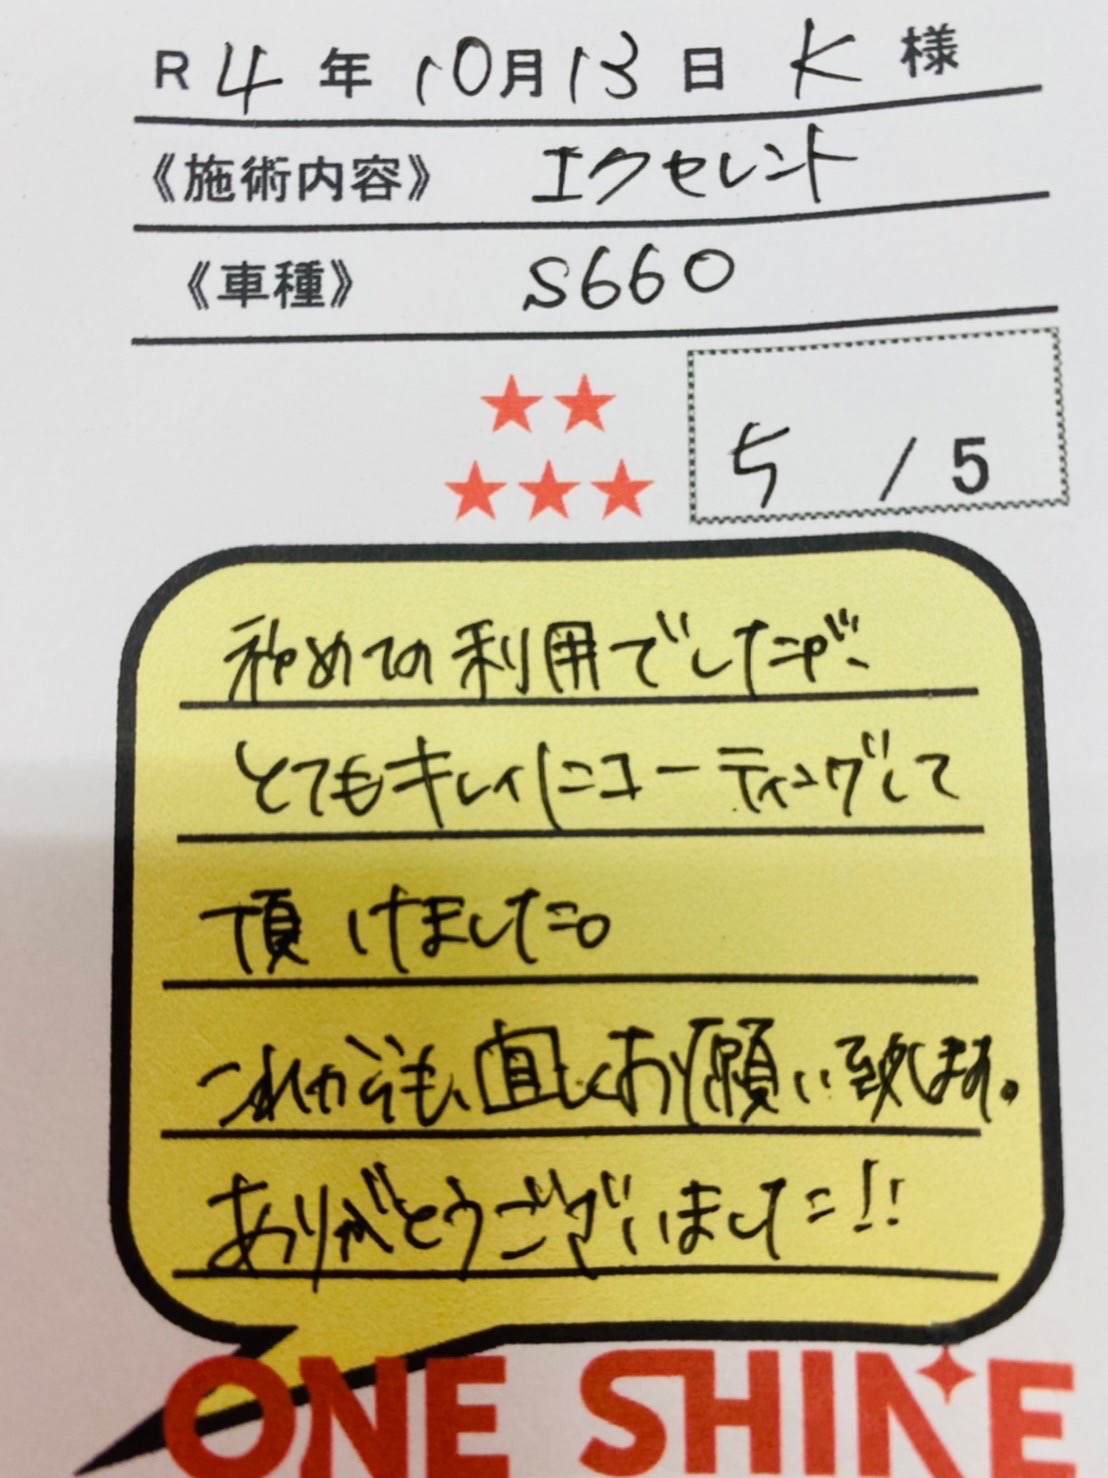 R 4 年 10月 13 日 K 様
《施術内容》 エクセレント
《車種》 S660
★★
★★★
5 / 5
初めての利用でしたが、
とてもキレイにコーティングして
頂けました。
これからも、宜しくお願い致します。
ありがとうございました!!
ONE SHINE